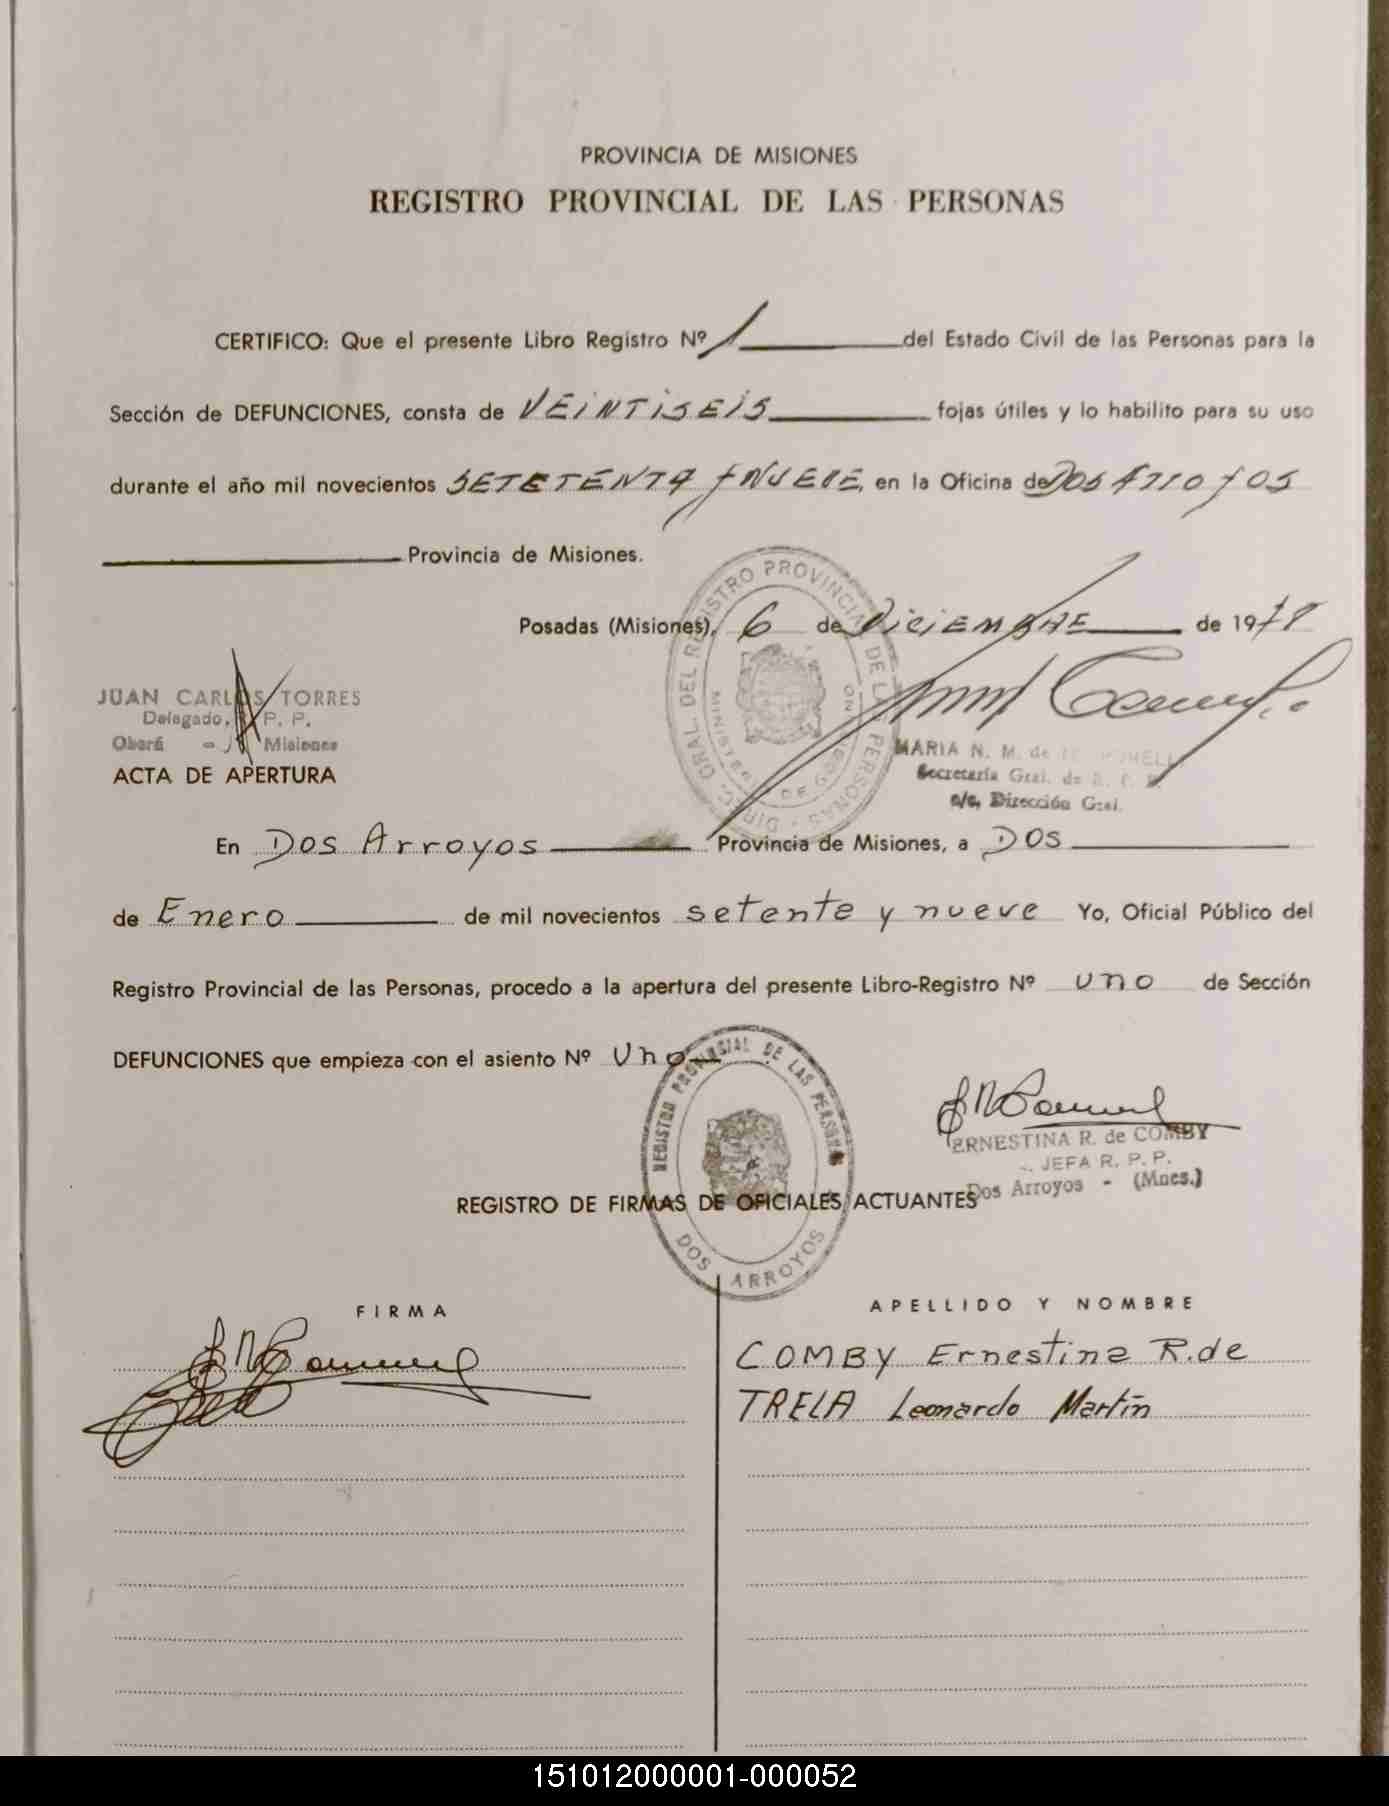 PROVINCIA DE MISIONES
REGISTRO PROVINCIAL DE LAS PERSONAS
CERTIFICO: Que el presente Libro Registro Nº 1 del Estado Civil de las Personas para la
Sección de DEFUNCIONES, consta de VEINTISEIS fojas útiles y lo habilito para su uso
durante el año mil novecientos SETETENTA y NUEVE, en la Oficina de Dos Arroyos
Provincia de Misiones.
Posadas (Misiones), 6 de DICIEMBRE de 1978
DIREC. GRAL. DEL REGISTRO PROVINCIAL DE LAS PERSONAS
MINISTERIO DE GOBIERNO
JUAN CARLOS TORRES
Delegado, R. P. P.
Oberá - Misiones
MARIA N. M. de
Secretaria Gral. de R. P. P.
a/c. Dirección Gral.
ACTA DE APERTURA
En Dos Arroyos Provincia de Misiones, a DOS
de Enero de mil novecientos setenta y nueve Yo, Oficial Público del
Registro Provincial de las Personas, procedo a la apertura del presente Libro-Registro Nº uno de Sección
DEFUNCIONES que empieza con el asiento Nº Uno
REGISTRO PROVINCIAL DE LAS PERSONAS
DOS ARROYOS
ERNESTINA R. de COMBY
JEFA R. P. P.
Dos Arroyos - (Mnes.)
REGISTRO DE FIRMAS DE OFICIALES ACTUANTES
FIRMA APELLIDO Y NOMBRE
COMBY Ernestina R. de
TRELA Leonardo Martín
151012000001-000052